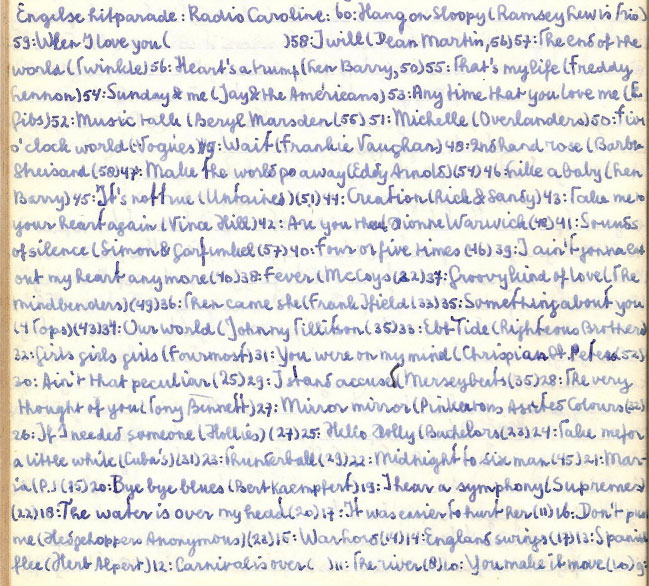 Engelse hitparade: Radio Caroline: 60: Hang on Sloopy (Ramsey Lewis Trio)
59: When I love you ( ) 58: I will (Dean Martin, 56) 57: The end of the
world (Twinkle) 56: Heart's a trump (Len Barry, 50) 55: That's my life (Freddy
Lennon) 54: Sunday & me (Jay & the Americans) 53: Any time that you love me (E.
Gibs) 52: Music talk (Beryl Marsden (55) 51: Michelle (Overlanders) 50: Five
o'clock world (Vogues) 49: Wait (Frankie Vaughan) 48: 2nd hand rose (Barbra
Streisand (58) 47: Make the world go away (Eddy Arnold) (54) 46: Like a baby (Len
Barry) 45: It's not true (Untaines) (51) 44: Creation (Rick & Sandy) 43: Take me to
your heart again (Vince Hill) 42: Are you there Dionne Warwick (42) 41: Sounds
of silence (Simon & Garfunkel (57) 40: Four or five times (46) 39: I ain't gonna eat
out my heart anymore (40) 38: Fever (McCoys (32) 37: Groovy kind of love (The
mindbenders) (49) 36: Then came she (Frank Ifield (33) 35: Something about you
(4 Tops) (43) 34: Our world (Johnny Tillitson (35) 33: Ebb Tide (Righteous Brothers)
32: Girls girls girls (Fourmost) 31: You were on my mind (Chrispian St. Peters (52)
30: Ain't that peculiar (25) 29: I stand accused (Merseybeats (35) 28: The very
thought of you (Tony Bennett) 27: Mirror mirror (Pinkertons Asorted Colours (32)
26: If I needed someone (Hollies) (27) 25: Hello Dolly (Bachelors (23) 24: Take me for
a little while (Cuba's) (31) 23: Thunderball (29) 22: Midnight to six man (45) 21: Mar-
ia (P.) (15) 20: Bye bye blues (Bert Kaempfert) 19: I hear a symphony (Supremes)
(22) 18: The water is over my head (20) 17: It was easier to hurt her (11) 16: Don't pus
me (Hedgehoppers Anonymous) (23) 15: Warlord (14) 14: England swings (17) 13: Spanish
flee (Herb Alpert) 12: Carnival is over ( ) 11: The river (8) 10: You make it move (10) 9: